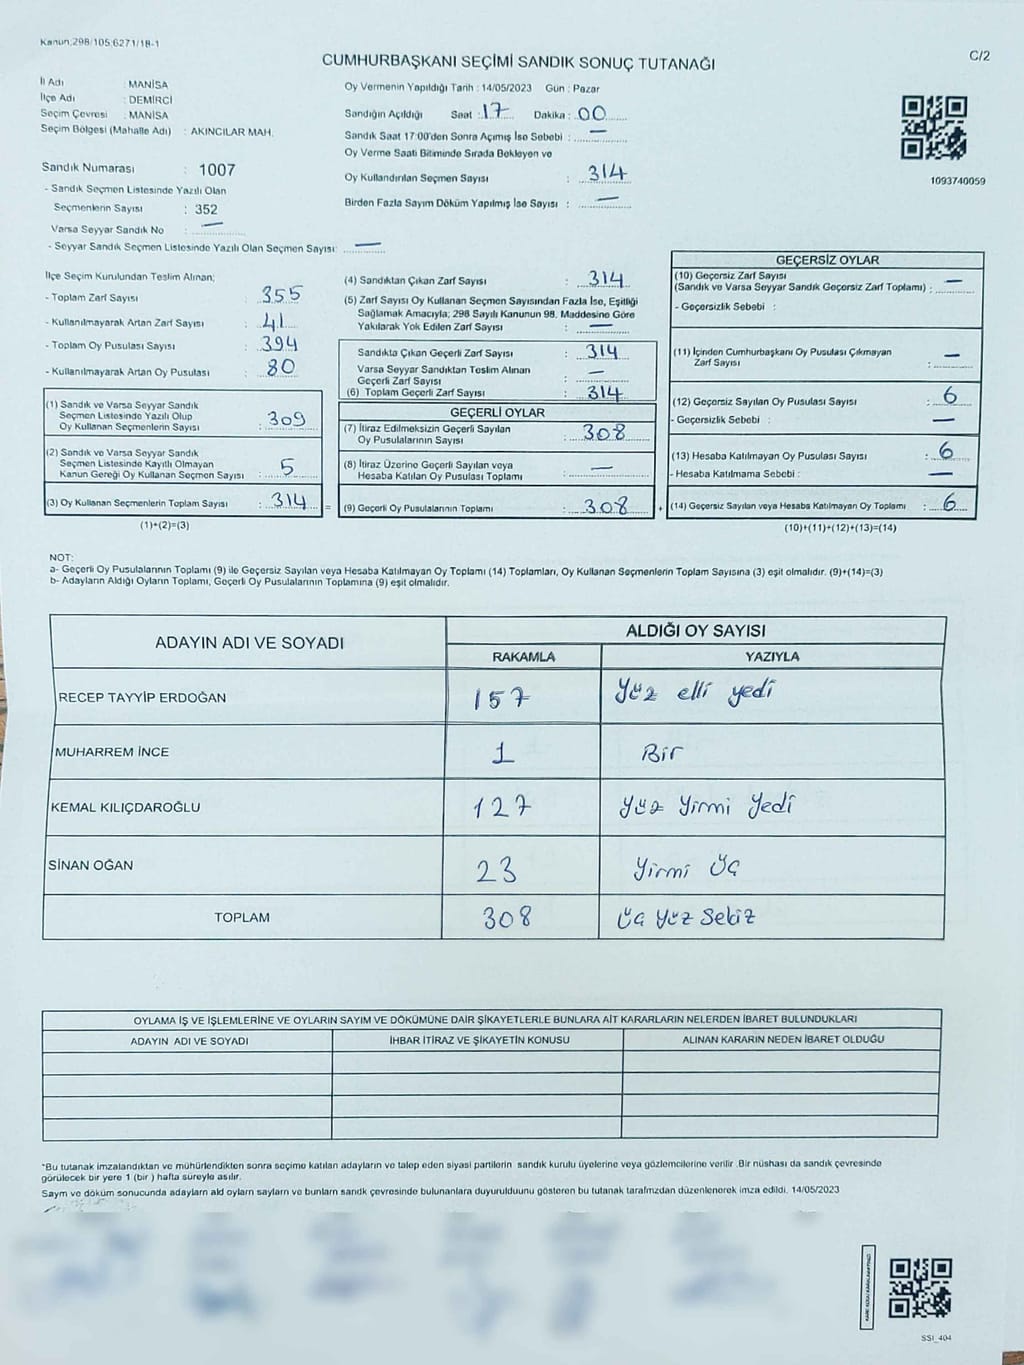 Kanun,298/105;6271/18-1
C/2
CUMHURBAŞKANI SEÇİMİ SANDIK SONUÇ TUTANAĞI
İl Adı : MANİSA
İlçe Adı : DEMİRCİ
Seçim Çevresi : MANİSA
Seçim Bölgesi (Mahalle Adı) : AKINCILAR MAH.
Sandık Numarası : 1007
- Sandık Seçmen Listesinde Yazılı Olan
Seçmenlerin Sayısı : 352
Varsa Seyyar Sandık No : —
- Seyyar Sandık Seçmen Listesinde Yazılı Olan Seçmen Sayısı: —
Oy Vermenin Yapıldığı Tarih : 14/05/2023 Gün : Pazar
Sandığın Açıldığı Saat : 17 Dakika : 00
Sandık Saat 17:00'den Sonra Açımış İse Sebebi : —
Oy Verme Saati Bitiminde Sırada Bekleyen ve
Oy Kullandırılan Seçmen Sayısı : 314
Birden Fazla Sayım Döküm Yapılmış İse Sayısı : —
1093740059
İlçe Seçim Kurulundan Teslim Alınan;
- Toplam Zarf Sayısı : 355
- Kullanılmayarak Artan Zarf Sayısı : 41
- Toplam Oy Pusulası Sayısı : 394
- Kullanılmayarak Artan Oy Pusulası : 80
(1) Sandık ve Varsa Seyyar Sandık
Seçmen Listesinde Yazılı Olup
Oy Kullanan Seçmenlerin Sayısı : 309
(2) Sandık ve Varsa Seyyar Sandık
Seçmen Listesinde Kayıtlı Olmayan
Kanun Gereği Oy Kullanan Seçmen Sayısı : 5
(3) Oy Kullanan Seçmenlerin Toplam Sayısı : 314 =
(1)+(2)=(3)
(4) Sandıktan Çıkan Zarf Sayısı : 314
(5) Zarf Sayısı Oy Kullanan Seçmen Sayısından Fazla İse, Eşitliği
Sağlamak Amacıyla; 298 Sayılı Kanunun 98. Maddesine Göre
Yakılarak Yok Edilen Zarf Sayısı : —
Sandıkta Çıkan Geçerli Zarf Sayısı : 314
Varsa Seyyar Sandıktan Teslim Alınan
Geçerli Zarf Sayısı : —
(6) Toplam Geçerli Zarf Sayısı : 314
GEÇERLİ OYLAR
(7) İtiraz Edilmeksizin Geçerli Sayılan
Oy Pusulalarının Sayısı : 308
(8) İtiraz Üzerine Geçerli Sayılan veya
Hesaba Katılan Oy Pusulası Toplamı : —
(9) Geçerli Oy Pusulalarının Toplamı : 308 +
GEÇERSİZ OYLAR
(10) Geçersiz Zarf Sayısı
(Sandık ve Varsa Seyyar Sandık Geçersiz Zarf Toplamı) : —
- Geçersizlik Sebebi :
(11) İçinden Cumhurbaşkanı Oy Pusulası Çıkmayan
Zarf Sayısı : —
(12) Geçersiz Sayılan Oy Pusulası Sayısı : 6
- Geçersizlik Sebebi : —
(13) Hesaba Katılmayan Oy Pusulası Sayısı : 6
- Hesaba Katılmama Sebebi : —
(14) Geçersiz Sayılan veya Hesaba Katılmayan Oy Toplamı : 6
(10)+(11)+(12)+(13)=(14)
NOT:
a- Geçerli Oy Pusulalarının Toplamı (9) ile Geçersiz Sayılan veya Hesaba Katılmayan Oy Toplamı (14) Toplamları, Oy Kullanan Seçmenlerin Toplam Sayısına (3) eşit olmalıdır. (9)+(14)=(3)
b- Adayların Aldığı Oyların Toplamı, Geçerli Oy Pusulalarının Toplamına (9) eşit olmalıdır.
ADAYIN ADI VE SOYADI ALDIĞI OY SAYISI
RAKAMLA YAZIYLA
RECEP TAYYİP ERDOĞAN 157 Yüz elli yedi
MUHARREM İNCE 1 Bir
KEMAL KILIÇDAROĞLU 127 Yüz Yirmi Yedi
SİNAN OĞAN 23 Yirmi Üç
TOPLAM 308 Üç Yüz Sekiz
OYLAMA İŞ VE İŞLEMLERİNE VE OYLARIN SAYIM VE DÖKÜMÜNE DAİR ŞİKAYETLERLE BUNLARA AİT KARARLARIN NELERDEN İBARET BULUNDUKLARI
ADAYIN ADI VE SOYADI İHBAR İTİRAZ VE ŞİKAYETİN KONUSU ALINAN KARARIN NEDEN İBARET OLDUĞU
*Bu tutanak imzalandıktan ve mühürlendikten sonra seçime katılan adayların ve talep eden siyasi partilerin sandık kurulu üyelerine veya gözlemcilerine verilir .Bir nüshası da sandık çevresinde
görülecek bir yere 1 (bir ) hafta süreyle asılır.
Sayım ve döküm sonucunda adayların ald oyların sayların ve bunların sandk çevresinde bulunanlara duyurulduunu gösteren bu tutanak tarafmzdan düzenlenerek imza edildi. 14/05/2023
SSI_404